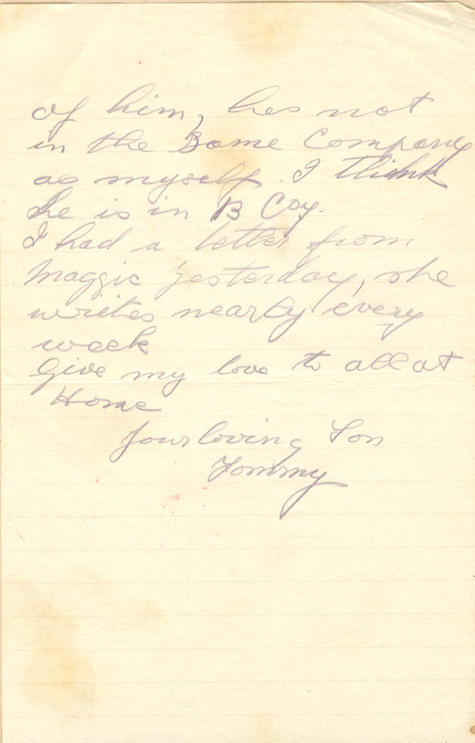 of him, hes not
in the Same Company
as myself. I think
he is in B Coy.
I had a letter from
Maggie yesterday, she
writes nearly every
week
Give my love to all at
Home
Your loving Son
Tommy